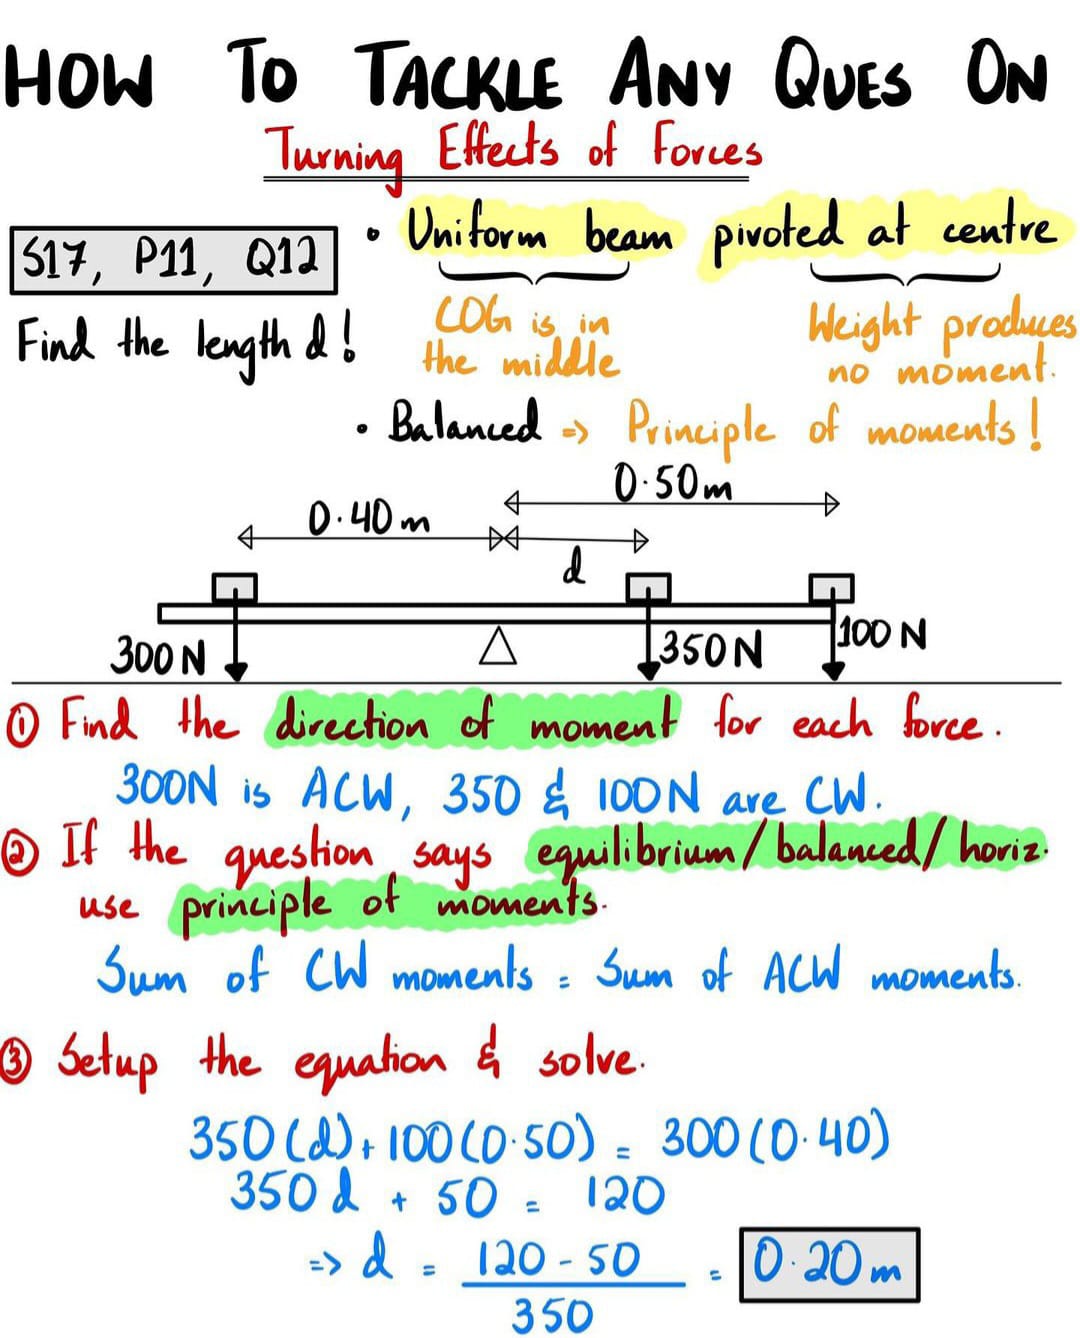 HOW TO TACKLE ANY QUES ON
Turning Effects of Forces
S17, P11, Q12
• Uniform beam pivoted at centre
COG is in
the middle
Weight produces
no moment.
Find the length d!
• Balanced => Principle of moments!
0.50m
0.40m
d
300N
350N
100N
① Find the direction of moment for each force.
300N is ACW, 350 & 100N are CW.
② If the question says equilibrium/balanced/horiz.
use principle of moments.
Sum of CW moments = Sum of ACW moments.
③ Setup the equation & solve.
350(d) + 100(0.50) = 300(0.40)
350d + 50 = 120
=> d = 120 - 50 = 0.20m
350